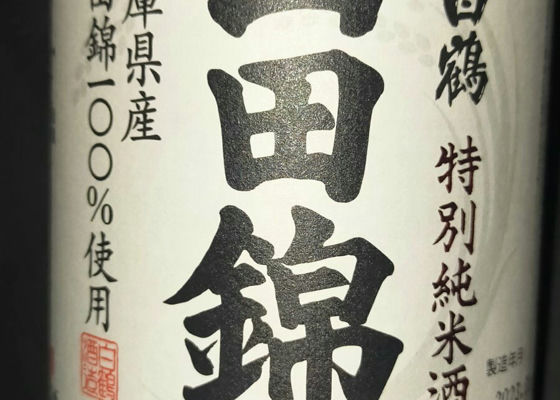 白鶴 特別純米酒
山田錦
兵庫県産
山田錦一〇〇%使用
白鶴酒造
製造年月
2023.